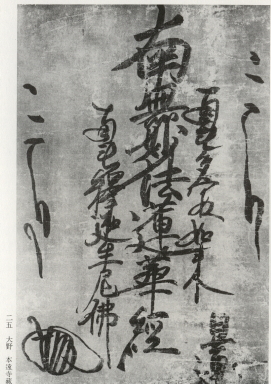 南無多寶如來
南無妙法蓮華經
南無釋迦牟尼佛
二五 大野 本遠寺蔵